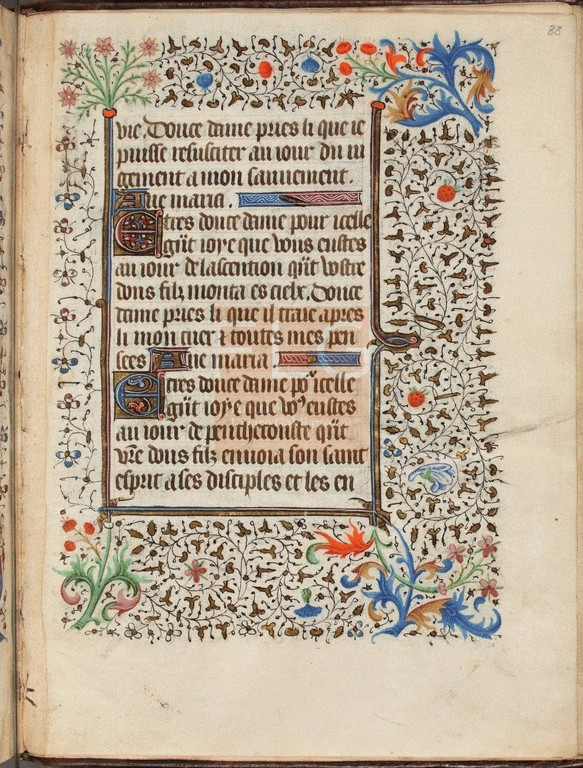 88
vie. Douce dame pries li que ie
puisse resusciter au iour du iu
gement a mon sauuement.
Aue maria.
E tres douce dame pour icelle
gn̄t ioye que vous eustes
au iour de lascention qn̄t vostre
dous filz monta es cielx. Douce
dame pries li que il traie apres
li mon cuer ⁊ toutes mes pen
sees Aue maria
E tres douce dame poᵘ icelle
gn̄t ioye que voꝰ eustes
au iour de penthecouste qn̄t
vr̄e dous filz enuoia son saint
esprit a ses disciples et les en